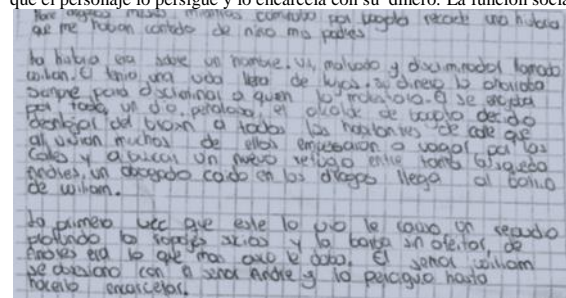 que el personaje lo persigue y lo encarcela con su dinero. La función social
Hace algunos meses, mientras caminaba por bogota recorde una historia
que me habian contado de niño mis padres
la historia era sobre un hombre. vil, malvado y discriminador llamado
wiliam. El tenia una vida llena de lujos. su dinero lo
siempre para discriminar a quien lo. El se
por todo, un dia, peñalosa, el alcalde de bogota decidio
desalojar del bronx a todos los habitantes de calle que
alli vivian muchos de ellos empezaron a vagar por las
calles y a buscar un nuevo refugio entre tanta busqueda
Andres, un abogado caido en las drogas llega al barrio
de wiliam.
la primera vez que este lo vio le causo un repudio
profundo la ropa sucias y la barba sin afeitar, de
Andres era lo que mas asco le daba. El señor wiliam
se obsesiono con el señor Andre y lo persiguio hasta
hacerlo encarcelar.